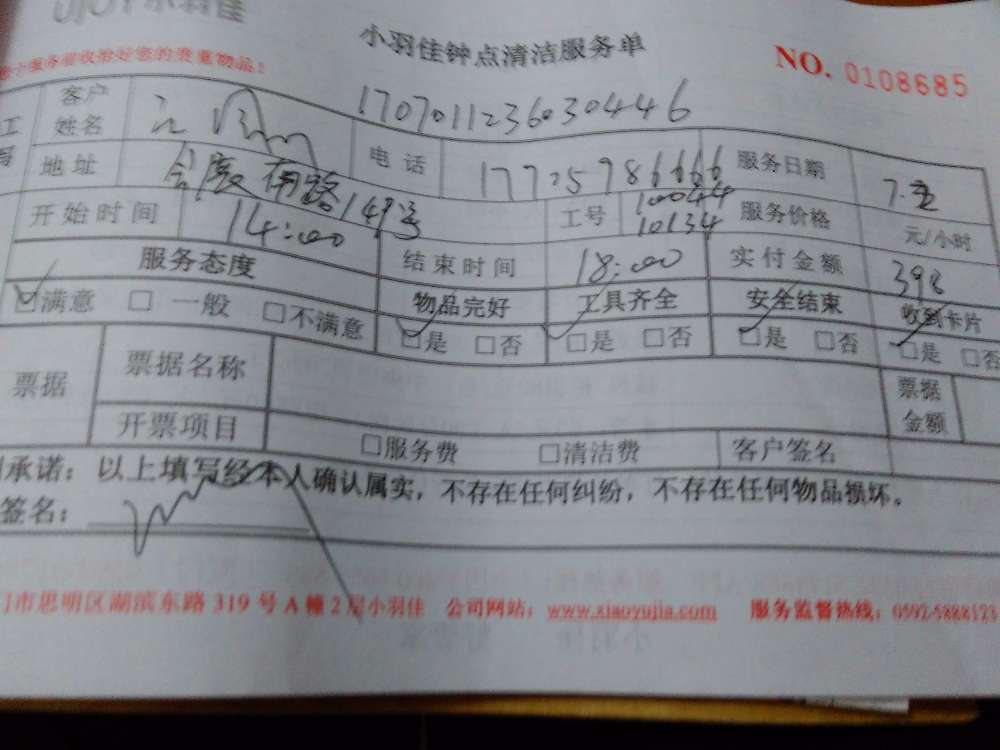 UJOY小羽佳
小羽佳钟点清洁服务单
NO. 0108685
服务前收拾好您的贵重物品！
17070112360304446
客户姓名
地址 路149号 电话 17725786666 服务日期 7.
开始时间 14:00 工号 10044 10134 服务价格 元/小时
服务态度 结束时间 18:00 实付金额 398
物品完好 工具齐全 安全结束 收到卡片
☑满意 □一般 □不满意 □是 □否 □是 □否 □是 □否 □是 □否
票据 票据名称 票据金额
开票项目 □服务费 □清洁费 客户签名
承诺：以上填写经本人确认属实，不存在任何纠纷，不存在任何物品损坏。
签名：
门市思明区湖滨东路 319 号 A 幢 2 层小羽佳 公司网站：www.xiaoyujia.com 服务监督热线：0592-5888123